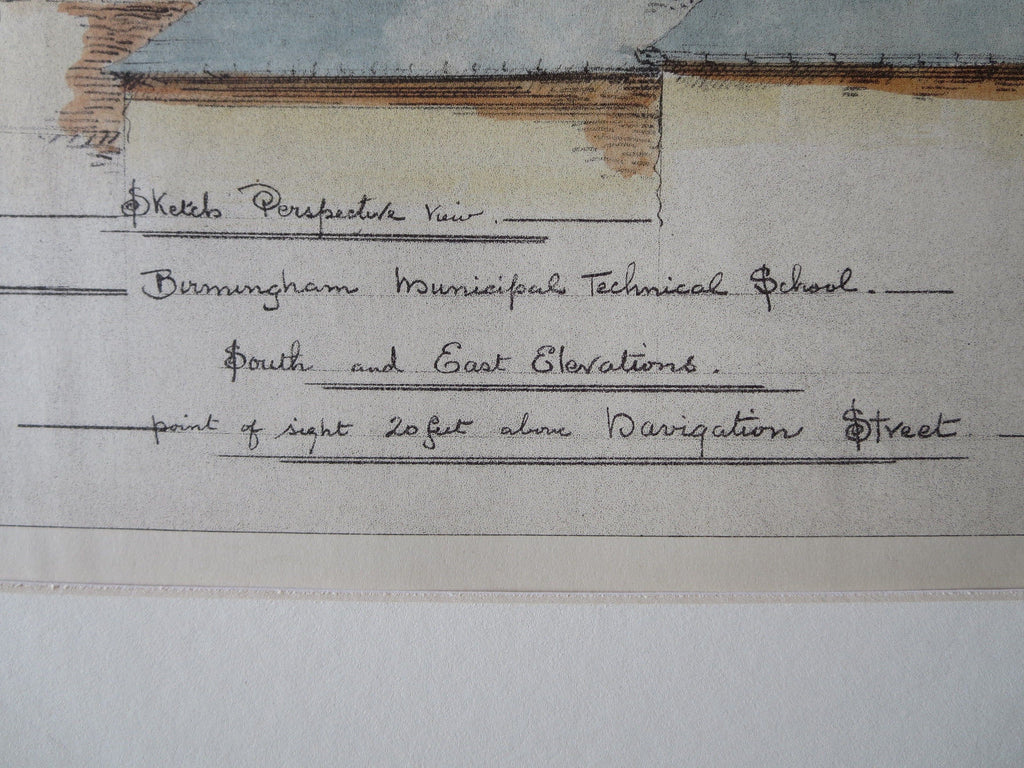 Sketch Perspective View.
Birmingham Municipal Technical School.
South and East Elevations.
point of sight 20 feet above Navigation Street